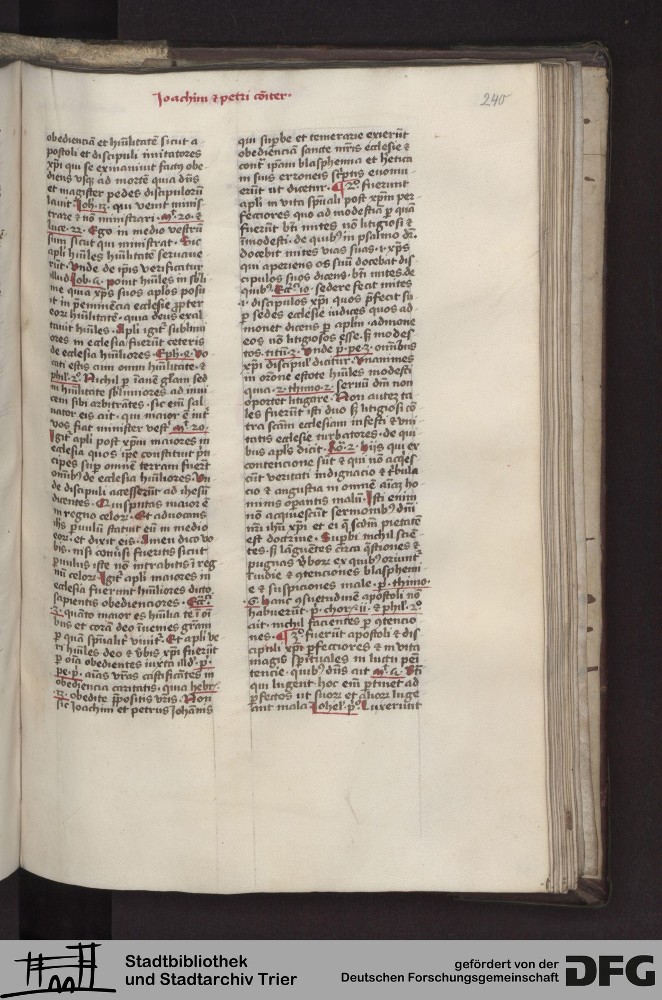 Joachim ⁊ petri cōiter·
240
obedienciā et hūilitatē sicut a
postoli et discipuli imitatores
xp̄i qui se exinanivit factꝰ obe
diens vsqꝫ ad mortē quia dn̄s
et magister pedes discipulorū
lauit· Joh· 13· qui venit minis
trare ⁊ nō ministrari· mͭ· 20· ⁊
luce· 22· Ego in medio vestrū
sum sicut qui ministrat· Sic
apli hūiles hūilitatē servave
rūt· Unde de ip̄is verificatur
illud Job· 5· ponit hūiles in sbli
me quia xp̄s suos aplos posu
it in p̄eminēcia ecclesie ꝓpter
eorꝫ hūilitatē· quia deus exal
tavit hūiles· Apli igitʳ sublimi
ores in ecclesia fuerūt ceteris
de ecclesia hūiliores· Eph· 4· Vo
cati estis cum omni hūilitate· ⁊
phil· 2º· Nichil ꝑ inanē gl̄am sed
in hūilitate sb̄limiores ad invi
cem sibi arbitrātes· sic em̄ sal
uator eis ait· qui maior ē int̄
vos fiat minister vestʳ mͭ· 20·
Igitʳ apli post xp̄m maiores in
ecclesia quos ip̄e constituit p̄n
cipes sup̄ omnē terram fuerūt
omībꝰ de ecclesia hūiliores· Vn̄
de discipuli accesserūt ad ihesū
dicentes· Quis putas maior ē
in regno celorꝫ· Et aduocans
ih̄s ꝑuulū statuit eū in medio
eorꝫ· et dixit eis· Amen dico vo
bis· nisi conūsi fueritis sicut
ꝑuulus iste nō intrabitis ī reg
nū celorꝫ· Igitʳ apli maiores in
ecclesia fuerunt hūiliores dicto
sapientis obedienciores· Ecc̄i·
3· quāto maior es hūilia te ī oī
bus et corā deo īuenies gr̄am
ꝑ quā sp̄ualit̄ viuitʳ· Et apli ve
ri hūiles deo ⁊ v̄bis xp̄i fuerūt
ꝑ oīa obedientes iuxta illd̄· p̄·
pe· p̄· aīas vr̄as castificātes in
obediēcia caritatis· quia hebrꝫ·
13· obedite p̄positis vr̄is· Non
sic Joachim et petrus Johānis
qui suꝑbe et temerarie exierūt
obedienciā sancte mr̄is ecclesie ⁊
contʳ ip̄am blasphemia et hetica
in suis erroneis sc̄ptis euomu
erūt ut dicetur· ¶ 2º· fuerunt
apli in vita sp̄uali post xp̄m per
fecciores quo ad modestiā ꝑ quā
fuerūt bn̄ mites nō litigiosi ⁊
īmodesti· de quibꝰ in psalmo dr̄·
docebit mites vias suas· ·i· xp̄s
qui aperiens os suū docebat dis
cipulos suos dicens· bn̄ mites· de
quibꝰ· Ecc̄i· 10· sedere fecit mites
·i· discipulos xp̄i quos p̄fecit su
ꝑ sedes ecclesie iudices quos ad
monet dicens ꝑ aplm̄· admone
eos nō litigiosos esse· sꝫ modes
tos· titū· 3· Unde p̄· pe· 3· omībus
xp̄i discipulˀ dicitur· Vnanimes
in orōne estote hūiles modesti
quia· 2· thimo· 2· seruū dn̄i non
oportet litigare· Non autez ta
les fuerūt isti duo sꝫ litigiosi cō
tra sc̄am ecclesiam infesti ⁊ vni
tatis ecclesie turbatores· de qui
bus apls̄ dicit· Ro· 2· hijs qui ex
contencione sūt ⁊ qui nō acqͥes
cūt veritati indignacio ⁊ tͥbula
cio ⁊ angustia in omnē aīaꝫ ho
minis oꝑantis malū· Isti enim
nō acquiescūt sermonibꝰ dn̄i
nr̄i ih̄u xp̄i et ei q̄ scd̄m pietatē
est doctrine· Supb̄i nichil sciē
tes· sꝫ lāguētes circa q̄stiones ⁊
pugnas v̄borꝫ ex quibꝰ oriuntʳ
īuidie ⁊ ꝯtenciones blasphemi
e ⁊ suspiciones male· p̄· thimo·
6· hanc ꝯsuetudinē apostoli nō
habuerūt· p̄· chorꝫ· ii· ⁊ phil· 2º·
ait· nichil facientes ꝑ ꝯtencio
nes· ¶ 3º· fuerūt apostoli ⁊ dis
cipuli xp̄i ꝑfecciores ⁊ in vita
magis sp̄irituales in luctu peni
tencie· quibꝰ dn̄s ait mͭ· 5· Bn̄
qui lugent· hoc em̄ ꝑtinet ad
ꝑfectos ut suorꝫ et aliorꝫ luge
ant mala· Johel· p̄º· Luxerunt
Stadtbibliothek
und Stadtarchiv Trier
gefördert von der
Deutschen Forschungsgemeinschaft
DFG